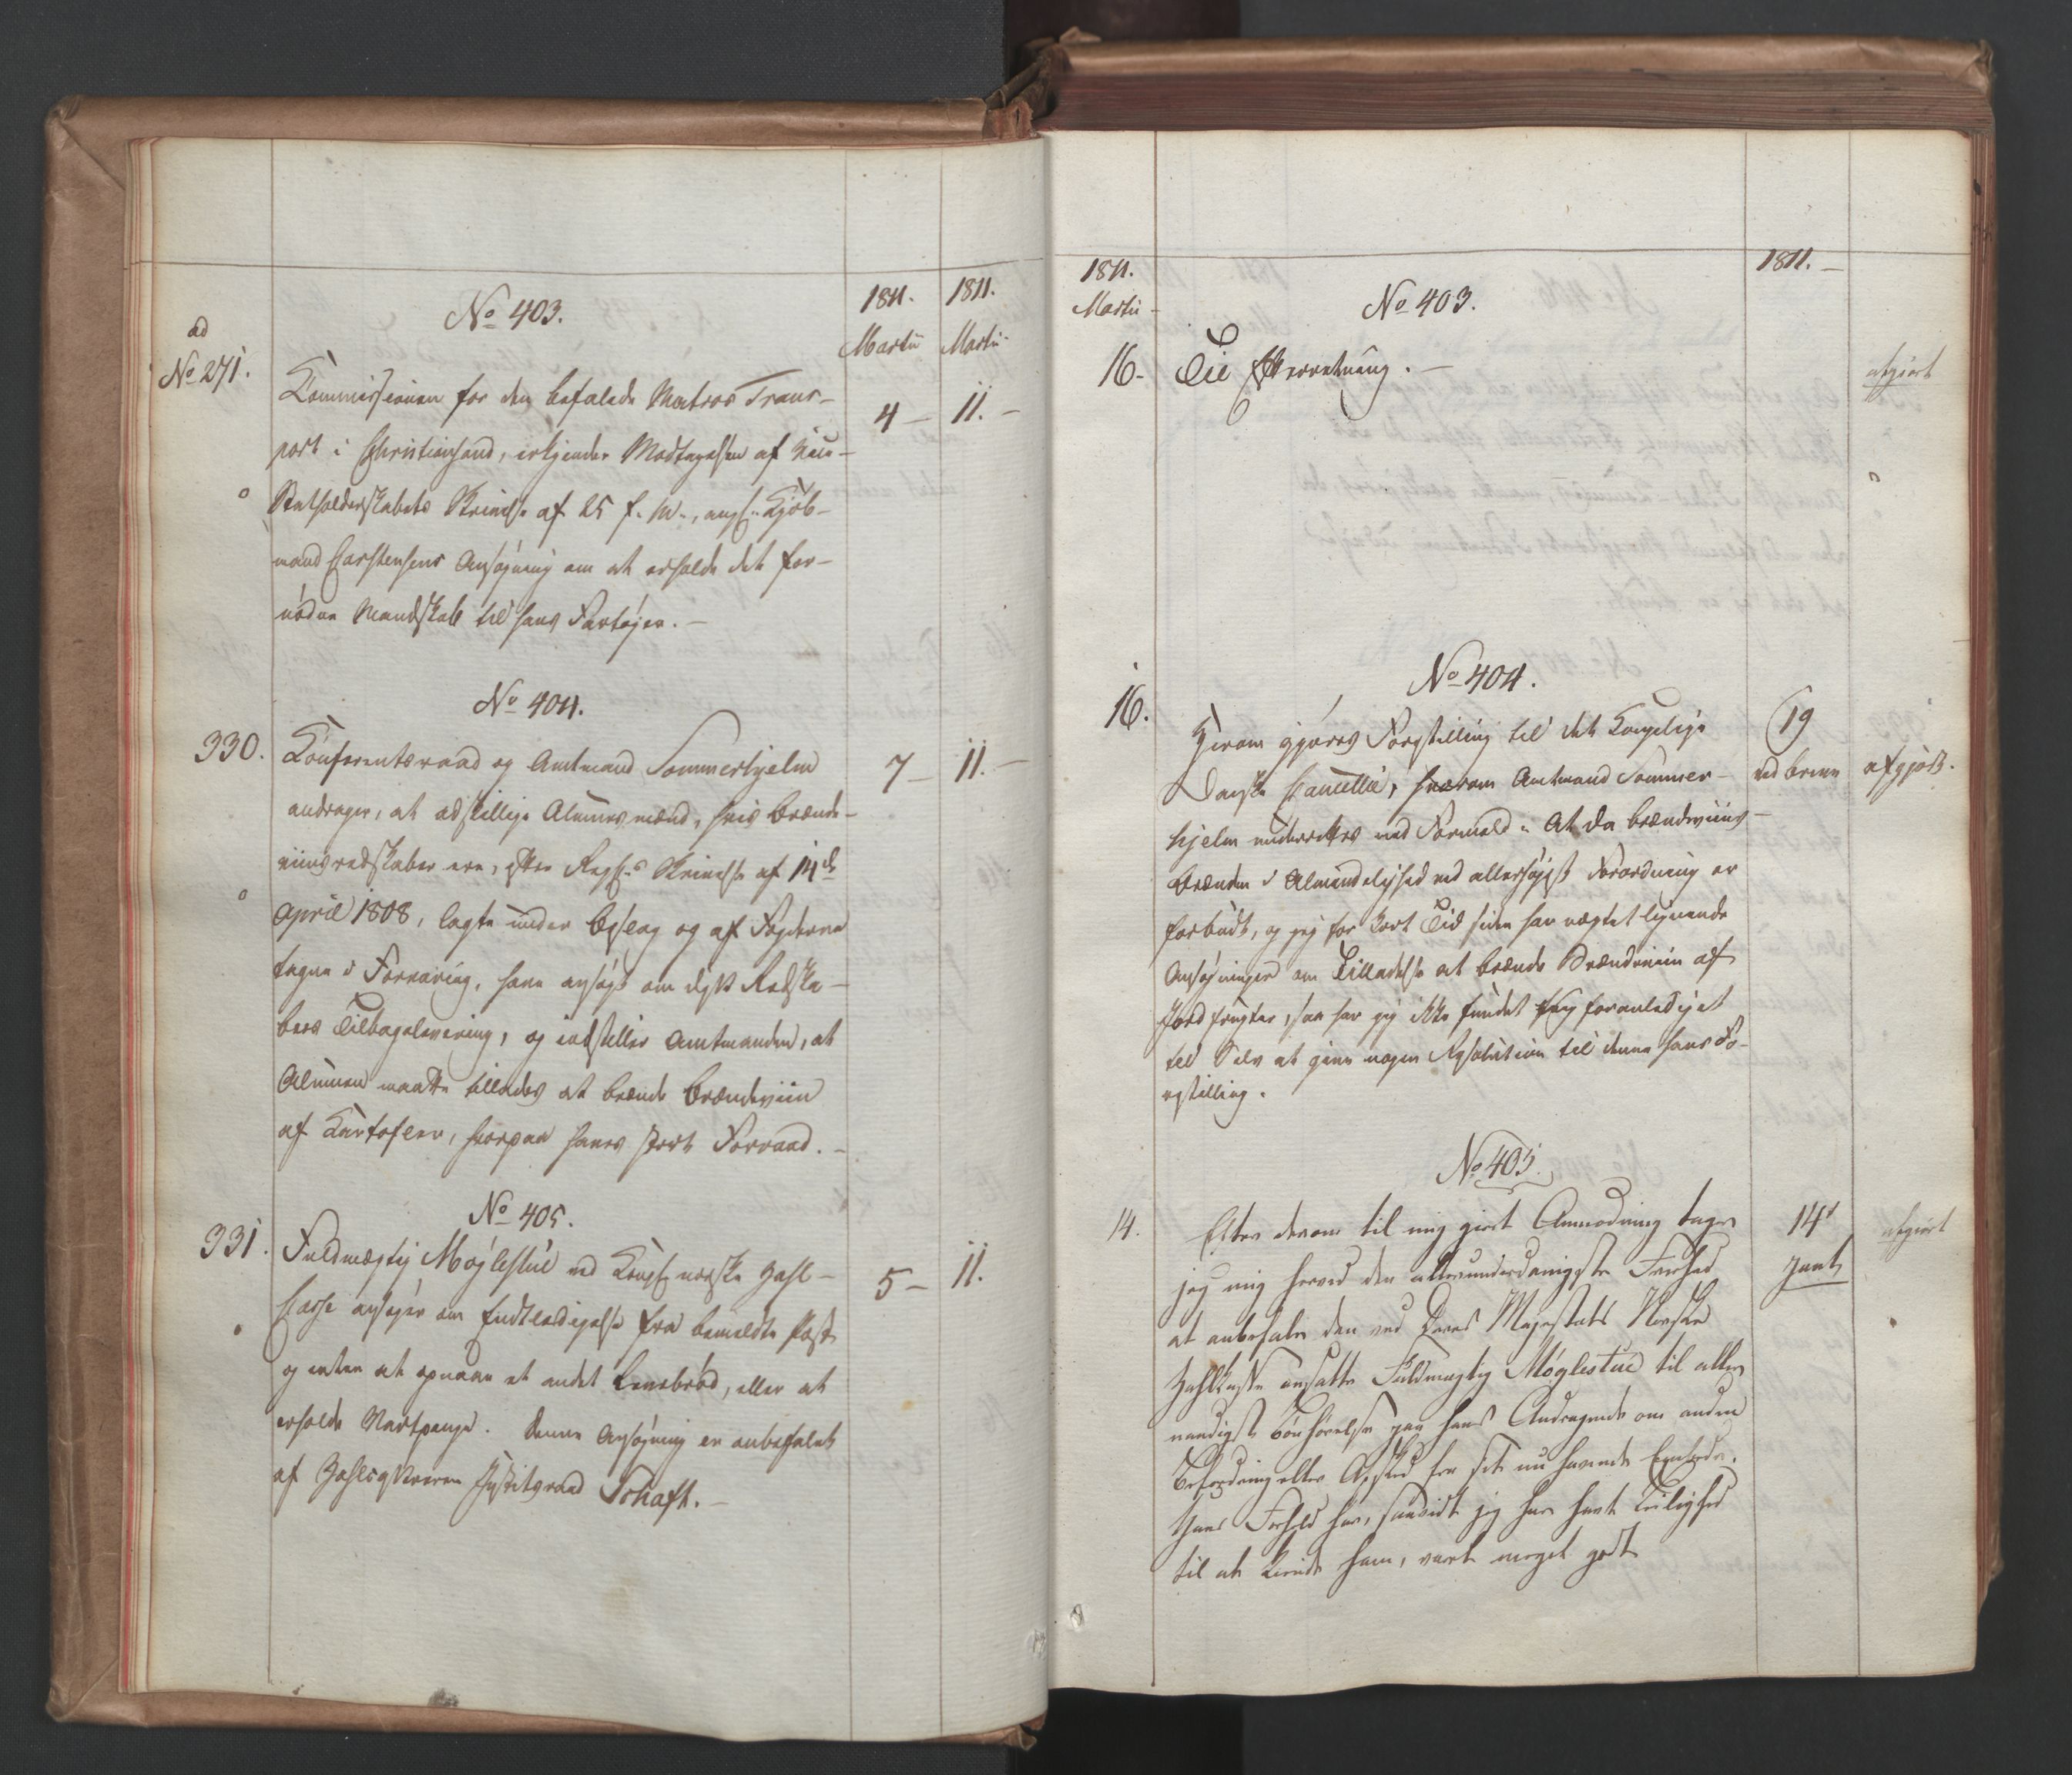 1811. 1811.
Martii Martii
No 403.
ad
No 271.
Commissionen for den befalede Matros Trans-
port i Christiansand, erkjender Modtagelsen af Vice-
Statholderskabets Skrivelse af 25 f. M., angl. Kjøb-
mand Carstensens Ansøgning om at erholde det for-
nødne Mandskab til hans Fartøjer. -
4 - 11. -
No 404.
330.
Conferentsraad og Amtmand Sommerhjelm
andrager, at adskillige Almuesmænd, hvis Brænde-
viinsredskaber ere, efter Regjs. Skrivelse af 14de
April 1808, lagte under Beslag og af Fogderne
tagne i Forvaring, have ansøgt om disse Redska-
bers Tilbagelevering, og indstiller Amtmanden, at
Almuen maatte tillades at brænde Brændeviin
af Kartofler, hvorpaa haves stort Forraad. -
7 - 11. -
No 405.
331.
Fuldmægtig Møglestue ved Kongl. norske Zahl-
Casse ansøger om Endtledigelse fra bemeldte Post
og enten at opnaae et andet Levebrød, eller at
erholde Vartpenge. Denne Ansøgning er anbefalet
af Zahlcasserer Justitsraad Schaft. -
5 - 11.
1811.
Martii
1811. -
No 403.
16. Til Efterretning. -
afgiort
No 404.
16.
Herom gjøres Forestilling til det Kongelige
Danske Cancellie, hvorom Amtmand Sommer-
hjelm underrettes med Formeld: At da Brændeviins-
Brænden i Almindelighed ved allerhøjest Forordning er
forbudt, og jeg for kort Tid siden har nægtet lignende
Ansøgninger om Tilladelse at brænde Brændeviin af
Jordfrugter, saa har jeg ikke fundet mig foranlediget
til Selv at give nogen Resolution til denne hans Fo-
restilling.
19
ved Breve
afgjort.
No 405.
14.
Efter derom til mig giort Anmodning tager
jeg mig herved den allerunderdanigste Friehed
at anbefale den ved Deres Majestæts Norske
Zahlkasse ansatte Fuldmægtig Møglestue til aller-
naadigst Bønhørelse paa hans Andragende om anden
Befordring eller Afsked fra sit nu havende Embede.
Hans Forhold har, saavidt jeg har havt Leilighed
til at kiende ham, været meget godt
14
afgiort